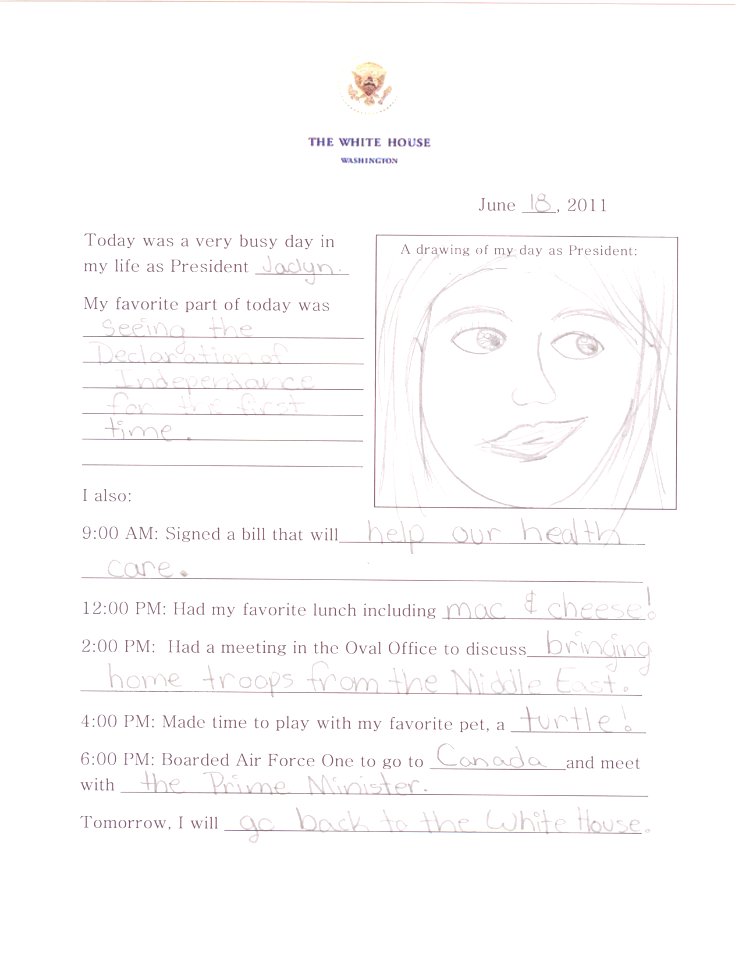 THE WHITE HOUSE
WASHINGTON
June 18, 2011
Today was a very busy day in
my life as President Jadyn.
My favorite part of today was
seeing the
Declaration of
Independance
for the first
time.
A drawing of my day as President:
I also:
9:00 AM: Signed a bill that will help our health
care.
12:00 PM: Had my favorite lunch including mac & cheese!
2:00 PM: Had a meeting in the Oval Office to discuss bringing
home troops from the Middle East.
4:00 PM: Made time to play with my favorite pet, a turtle!
6:00 PM: Boarded Air Force One to go to Canada and meet
with the Prime Minister.
Tomorrow, I will go back to the White House.